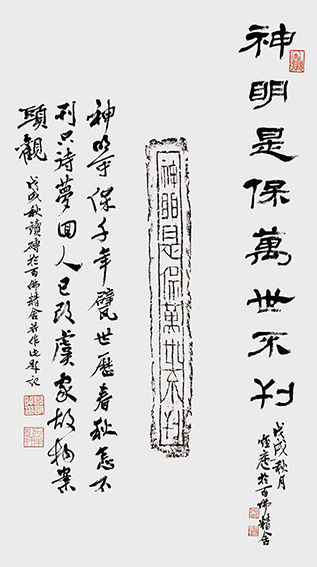 神明是保萬世不刊
戊戌秋月
於百佛精舍
神明是保萬世不刊
神明守保千年甓世歷春秋怎不
刊只夢回人已改虞家故物案
頭觀
戊戌秋讀磚於百佛精舍並作此題記